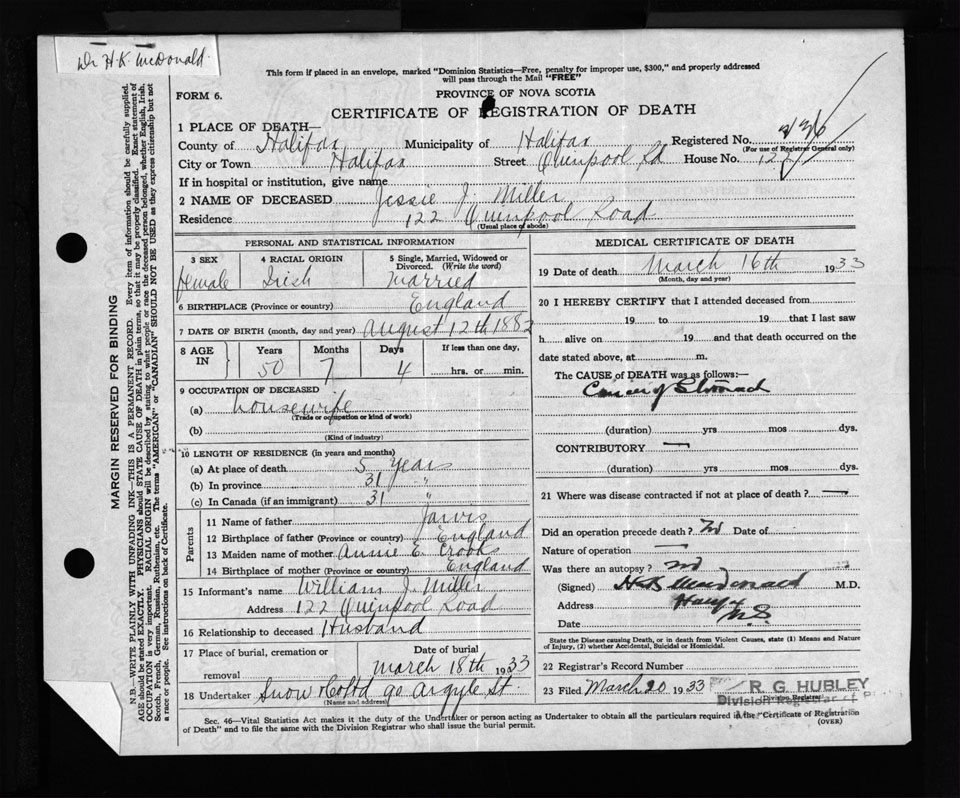 Dr H. K. McDonald
This form if placed in an envelope, marked "Dominion Statistics—Free, penalty for improper use, $300," and properly addressed
will pass through the Mail "FREE"
FORM 6.
PROVINCE OF NOVA SCOTIA
CERTIFICATE OF REGISTRATION OF DEATH
1 PLACE OF DEATH—
County of Halifax Municipality of Halifax Registered No.
(For use of Registrar General only)
City or Town Halifax Street Quinpool Rd House No. 122
If in hospital or institution, give name
2 NAME OF DECEASED Jessie J. Miller
Residence 122 Quinpool Road
(Usual place of abode)
PERSONAL AND STATISTICAL INFORMATION
3 SEX 4 RACIAL ORIGIN 5 Single, Married, Widowed or
Divorced. (Write the word)
Female Irish Married
6 BIRTHPLACE (Province or country) England
7 DATE OF BIRTH (month, day and year) August 12th 1882
8 AGE IN Years Months Days If less than one day,
50 7 4 hrs. or min.
9 OCCUPATION OF DECEASED
(a) housewife
(Trade or occupation or kind of work)
(b)
(Kind of industry)
10 LENGTH OF RESIDENCE (in years and months)
(a) At place of death 5 Years
(b) In province 31 "
(c) In Canada (if an immigrant) 31 "
Parents
11 Name of father Jarvis
12 Birthplace of father (Province or country) England
13 Maiden name of mother Annie E. Crooks
14 Birthplace of mother (Province or country) England
15 Informant's name William J. Miller
Address 122 Quinpool Road
16 Relationship to deceased Husband
17 Place of burial, cremation or removal Date of burial
March 18th 1933
18 Undertaker Snow & Co Ltd 90 Argyle St.
(Name and address)
MEDICAL CERTIFICATE OF DEATH
19 Date of death March 16th 1933
(Month, day and year)
20 I HEREBY CERTIFY that I attended deceased from
19 to 19 that I last saw
h alive on 19 and that death occurred on the
date stated above, at m.
The CAUSE of DEATH was as follows:—
Cancer of Stomach
(duration) yrs mos dys.
CONTRIBUTORY —
(duration) yrs mos dys.
21 Where was disease contracted if not at place of death? —
Did an operation precede death? No Date of
Nature of operation —
Was there an autopsy? No
(Signed) H K MacDonald M.D.
Address Halifax
N.S.
Date
State the Disease causing Death, or in death from Violent Causes, state (1) Means and Nature
of Injury, (2) whether Accidental, Suicidal or Homicidal.
22 Registrar's Record Number
23 Filed March 20 1933 R. G. HUBLEY
Division Registrar
Division Registrar of
Sec. 46—Vital Statistics Act makes it the duty of the Undertaker or person acting as Undertaker to obtain all the particulars required in the "Certificate of Registration
of Death" and to file the same with the Division Registrar who shall issue the burial permit.
(OVER)
MARGIN RESERVED FOR BINDING
N.B.—WRITE PLAINLY WITH UNFADING INK—THIS IS A PERMANENT RECORD. Every item of information should be carefully supplied.
AGE should be stated EXACTLY. PHYSICIANS should STATE CAUSE OF DEATH in plain terms, so that it may be properly classified. Exact statement of
OCCUPATION is very important. RACIAL ORIGIN will be described by stating to what people or race the deceased person belonged, whether English, Irish,
Scotch, French, German, Russian, Ruthenian, etc. The terms "AMERICAN" or "CANADIAN" SHOULD NOT BE USED as they express citizenship but not
a race or people. See instructions on back of Certificate.